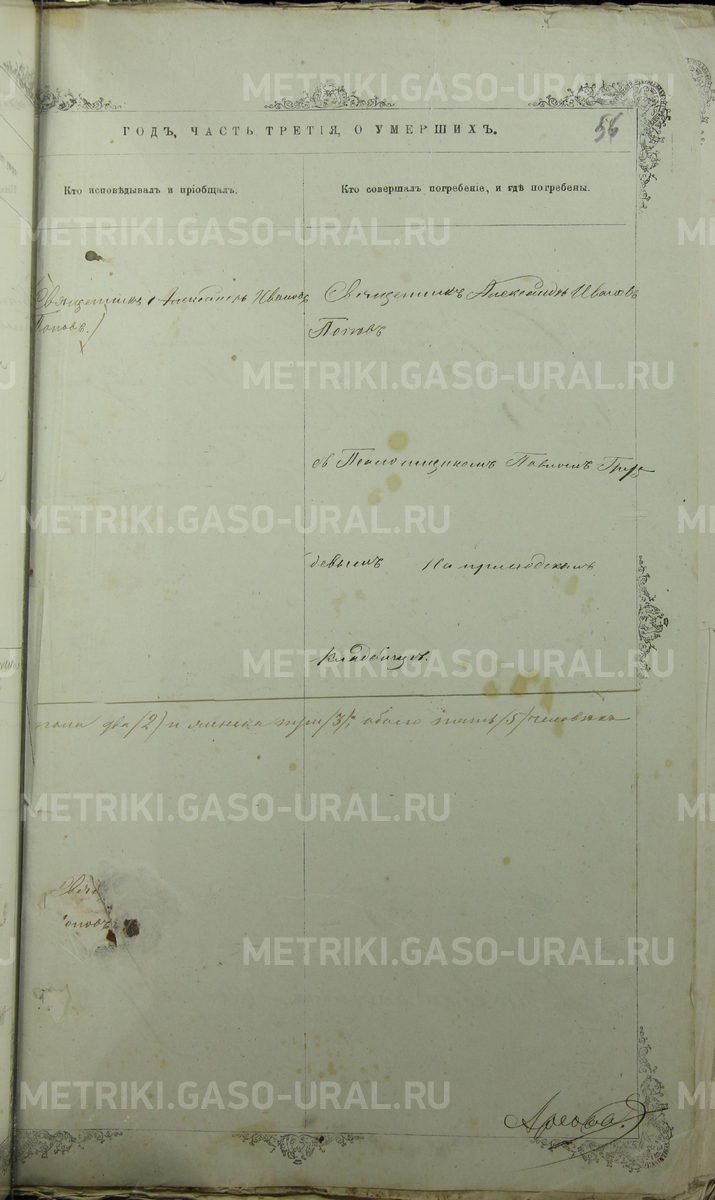 ГОДЪ, ЧАСТЬ ТРЕТІЯ, О УМЕРШИХЪ.
56
Кто исповѣдывалъ и пріобщалъ.
Кто совершалъ погребеніе, и гдѣ погребены.
Священникъ Александръ Ивановъ
Поповъ.
Священникъ Александръ Ивановъ
Поповъ
съ Псаломщикомъ Павломъ
На приходскомъ
кладбищѣ.
пола два /2/ и женска три /3/, обоего пять /5/ человѣкъ
METRIKI.GASO-URAL.RU
METRIKI.GASO-URAL.RU
METRIKI.GASO-URAL.RU
METRIKI.GASO-URAL.RU
METRIKI.GASO-URAL.RU
METRIKI.GASO-URAL.RU
METRIKI.GASO-URAL.RU
METRIKI.GASO-URAL.RU